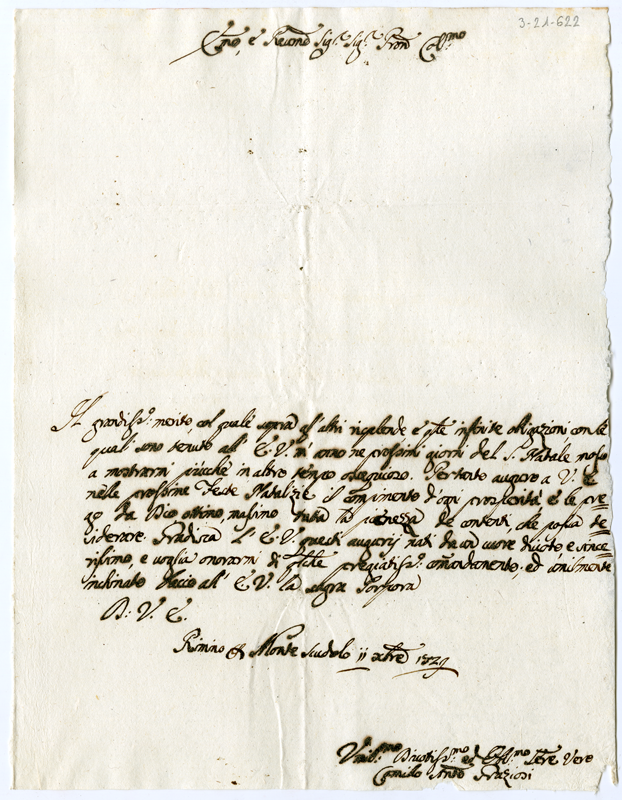 3-21-622
Emo, e Revmo Sig.r Sig.r Pron Colmo
Il grandiss.o merito, col quale sopra gl'altri risplende e q.te infinite obligazioni con le
quali sono tenuto all' E.V. m'anno ne prossimi giorni del S. Natale mosso
a mostrarmi più che in altro tempo ossequioso. Pertanto auguro a V.E.
nelle prossime Feste Natalizie il compimento d'ogni prosperità e le pre=
go da Dio ottimo, massimo tutta la pienezza de contenti, che possa de=
siderare. Gradisca l'E.V. questi augurij nati da un cuore divoto e since=
rissimo, e voglia onorarmi di q.lche pregiatiss.o comandamento; ed umilmente
inchinato bacio all' E.V. la sagra Porpora
D: V. E.
Rimino Monte Scudolo 11 xbre 1729
Umil.mo Divotiss.mo ed Obl.mo Serre Vero
Camillo Anto Graziosi